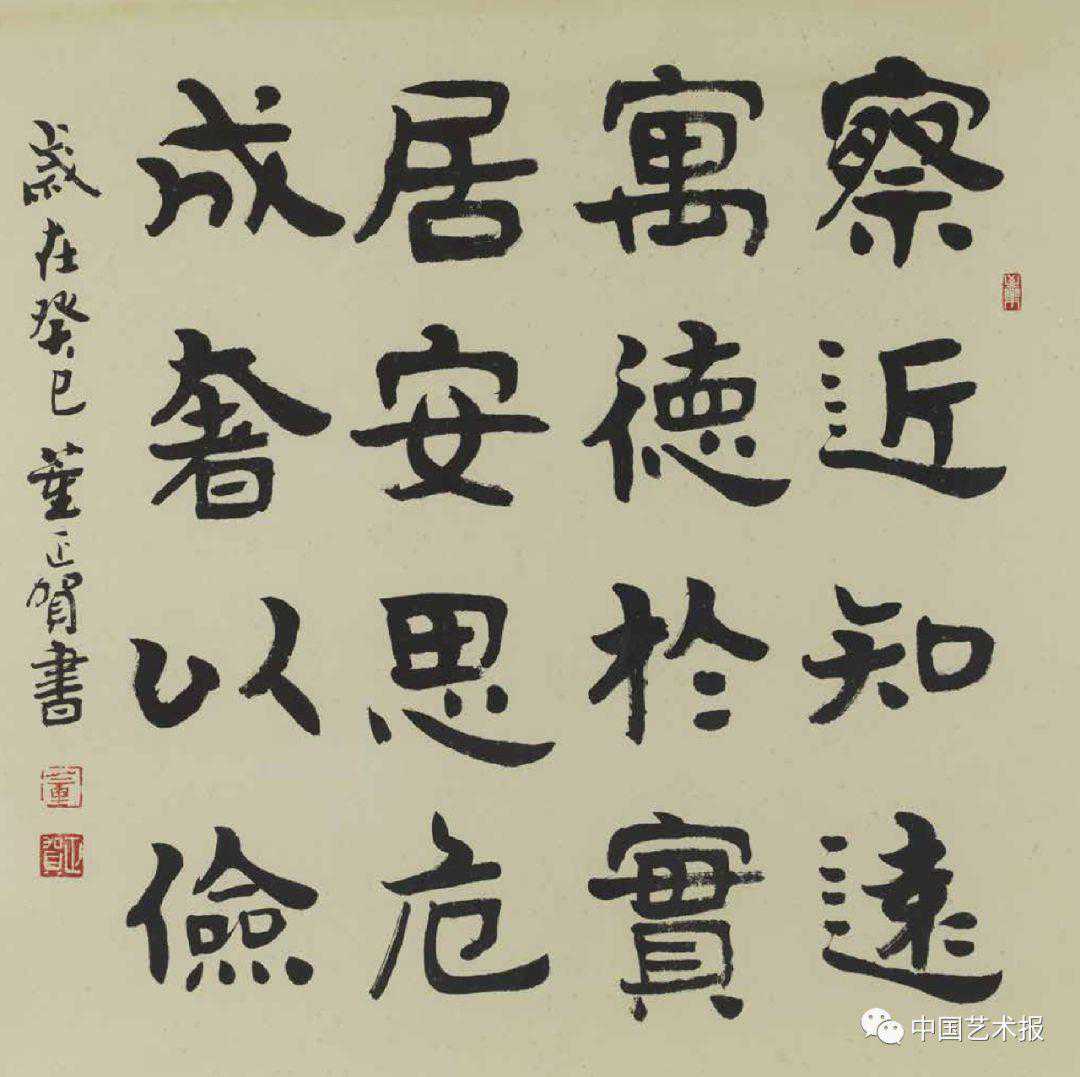 察近知遠
寓德於實
居安思危
成奢以儉
歲在癸巳董正賀書
董
正賀
中国艺术报